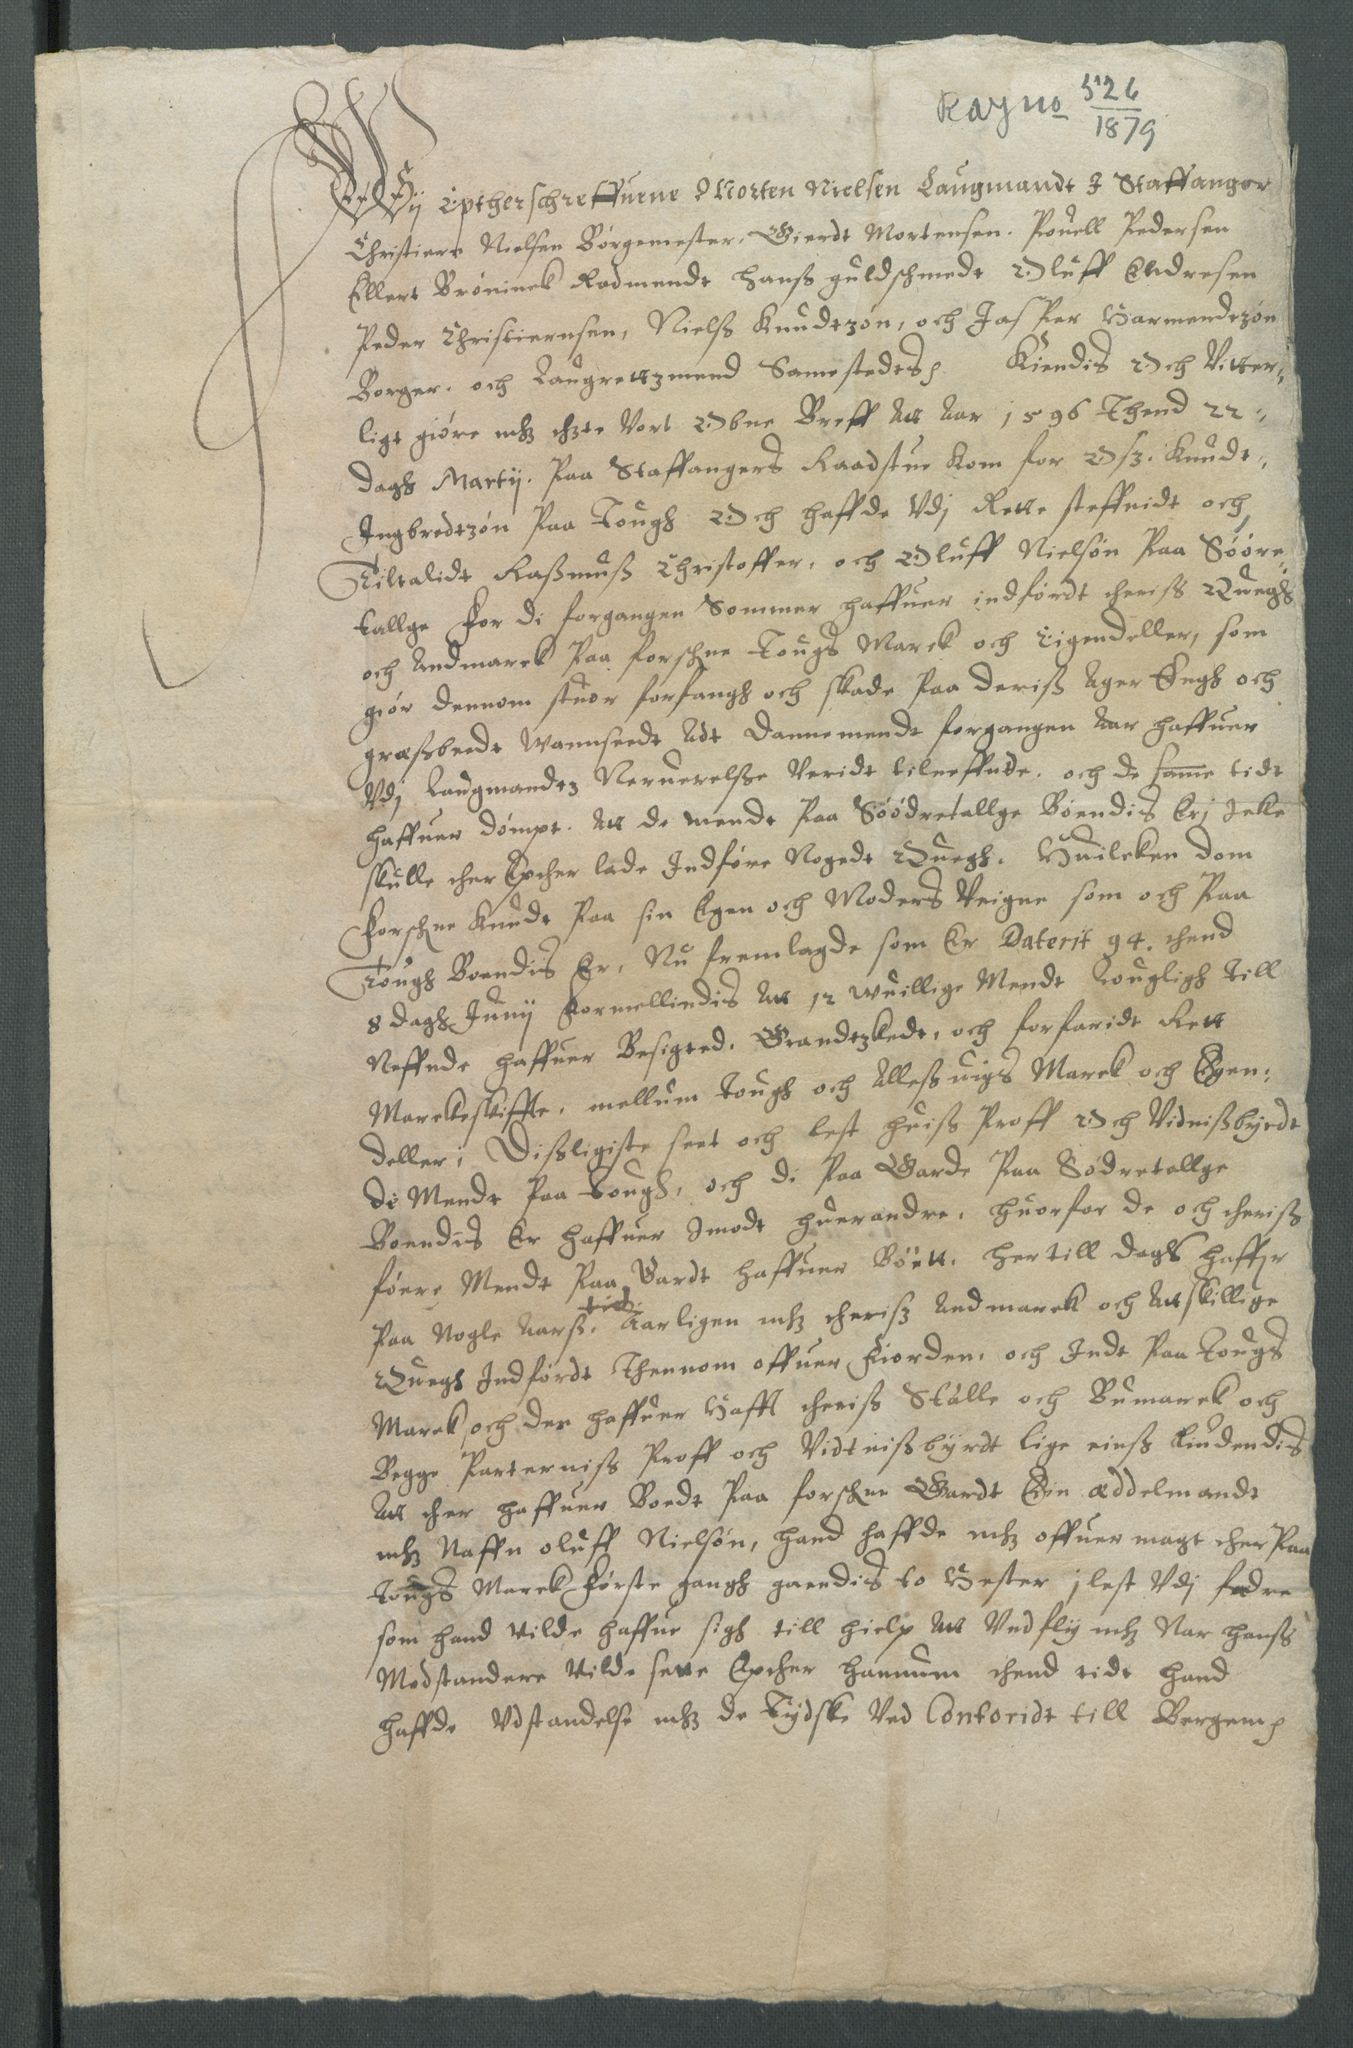 Ray no 526/1879
Wij Epttherschreffuene Morten Nielsen Laugmandt I Staffanger
Christiern Nielsen Borgemester, Gierdt Mortensen. Pouell Pedersen
Ellert Bröninck Radmendt Hanss guldschmedt Oluff Andresen
Peder Christiernsen, Nielss Knudtzön, och Jasper Harmendtzön
Borger. och Laugrettzmend Samestedts Kiendis Och Vitter¬
ligt giöre mz thette Vort Obne Breff Att Aar 1596 Thend 22
dagh Martij. Paa Staffangers Raadstue Kom for Osz. Knudt
Ingbredtzön Paa Tough Och haffde Vdj Rette steffnidt och
Tiltalidt Rassmuss Christoffer, och Oluff Nielsön Paa Sööre¬
tallge For di forgangen Sommer haffuer indfördt theriss Quegh
och Andmarck Paa forschne Tougs Marck och Eigendeller, som
giör dennom stuor forfangh och skade Paa deriss Ager Engh och
græssbeedt Wannseedt Adt Dannemendt forgangen Aar haffuer
Vdj Laugmandtz Neruerelsse Veridt tilneffnde. och de samme tidt
haffuer dömpt. Att de mendt Paa Söödretallge Böendis Erj Icke
skulle ther Epther lade Indföre Nogedt Quegh. Huilcken dom
Forschne Knudt Paa sin Egen och Moders Veigne som och Paa
Tough Boendis Er, Nu fremlagde som Er Daterit 94. thend
8 dagh Junij Formellindis Att 12 wuillige Mendt Lougligh till
Neffnde haffuer Besigted. Grandtzkedt, och forfaridt Rett
Marckeskiffte, mellum Tough och Allessuigs Marck och Egen:
deller; Dissligiste seet och lest huiss Proff Och Vidnissbyrdt
di Mendt Paa Tough, och di Paa Garde Paa Södretallge
Boendis Er haffuer Imodt huerandre, huorfor de och theriss
föere Mendt Paa Gardt haffuer Böett. her till dags haffr
Paa Nogle Aarss. tid Aarligen mz theriss Andmarck och Attskillige
Quegh Indfördt Thennom offuer Fiorden, och Indt Paa Tougs
Marck, och der haffuer Hafft theriss Stalle och Bumarck och
Begge Parterniss Proff och Vidtnissbyrdt lige einss liudendis
Att ther haffuer Boedt Paa forschne Gardt Ein Æddelmandt
mz Naffn oluff Nielsön, hand haffde mz offuer magt ther Paa
Tougs Marck Förste gangh gaendis to Hester j lest Vdj fedre
som hand vilde haffue sigh till hielp Att Vndfly mz Nar hanss
Modstandere Vilde sette Epther hannum thend tidt hand
haffde Vdstandelse mz de Tydske Ved Contoridt till Bergenn